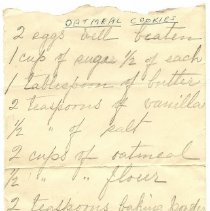 OATMEAL COOKIES
2 eggs well beaten
1 cup of sugar ½ of each
1 tablespoon of butter
2 teaspoons of vanilla
½ " of salt
2 cups of oatmeal
½ " " flour
2 teaspoons baking powd